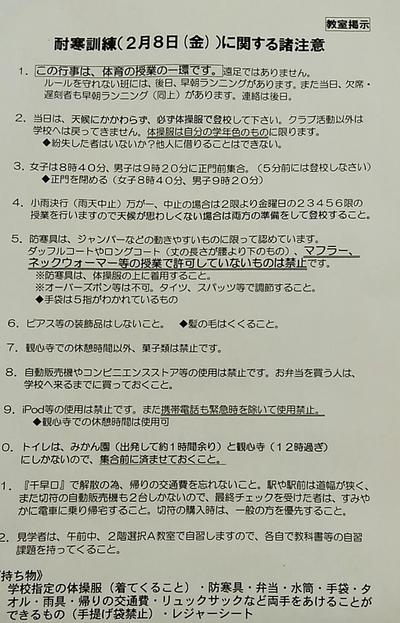 教室掲示
耐寒訓練(2月8日(金))に関する諸注意
1．この行事は、体育の授業の一環です。遠足ではありません。
ルールを守れない班には、後日、早朝ランニングがあります。また当日、欠席・
遅刻者も早朝ランニング（同上）があります。連絡は後日。
2．当日は、天候にかかわらず、必ず体操服で登校して下さい。クラブ活動以外は
学校へは戻ってきません。体操服は自分の学年色のものに限ります。
◆紛失した者はいないか？他人に借りることはできない。
3．女子は8時40分、男子は9時20分に正門前集合。（5分前には登校しなさい）
◆正門を閉める（女子8時40分、男子9時20分）
4．小雨決行（雨天中止）万が一、中止の場合は2限より金曜日の23456限の
授業を行いますので天候が思わしくない場合は両方の準備をして登校すること。
5．防寒具は、ジャンパーなどの動きやすいものに限って認めています。
ダッフルコートやロングコート（丈の長さが腰より下のもの）、マフラー、
ネックウォーマー等の授業で許可していないものは禁止です。
※防寒具は、体操服の上に着用すること。
※オーバーズボン等は不可。タイツ、スパッツ等で調節すること。
◆手袋は5指がわかれているもの
6．ピアス等の装飾品はしないこと。 ◆髪の毛はくくること。
7．観心寺での休憩時間以外、菓子類は禁止です。
8．自動販売機やコンビニエンスストア等の使用は禁止です。お弁当を買う人は、
学校へ来るまでに買っておくこと。
9．iPod等の使用は禁止です。また携帯電話も緊急時を除いて使用禁止。
◆観心寺での休憩時間は使用可
0．トイレは、みかん園（出発して約1時間余り）と観心寺（12時過ぎ）
にしかないので、集合前に済ませておくこと。
1．『千早口』で解散の為、帰りの交通費を忘れないこと。駅や駅前は道幅が狭く、
また切符の自動販売機も2台しかないので、最終チェックを受けた者は、すみや
かに電車に乗り帰宅すること。切符の購入時は、一般の方を優先すること。
2．見学者は、午前中、2階選択A教室で自習しますので、各自で教科書等の自習
課題を持ってくること。
持ち物》
学校指定の体操服（着てくること）・防寒具・弁当・水筒・手袋・タ
オル・雨具・帰りの交通費・リュックサックなど両手をあけることが
できるもの（手提げ袋禁止）・レジャーシート